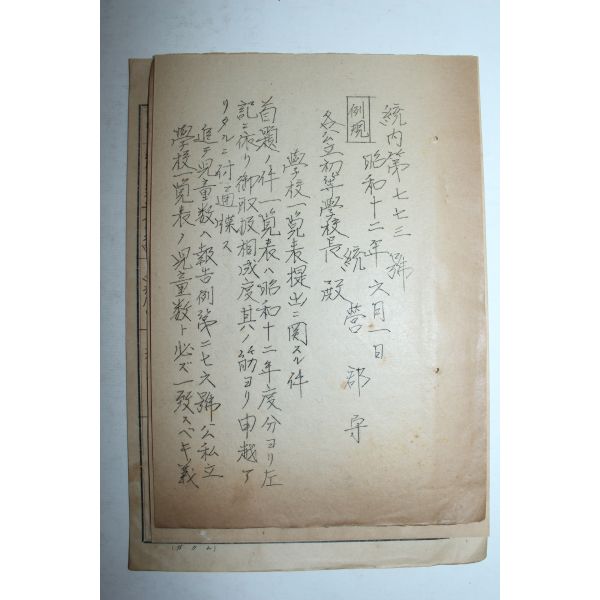 統内第七七三號
昭和十二年六月一日
統營郡守
例規
各公立初等學校長殿
學校一覽表提出ニ関スル件
首題ノ件一覽表ハ昭和十二年度分ヨリ左
記ニ依リ御取扱相成度其ノ筋ヨリ申越ア
リタルニ付通牒ス
進テ児童數ハ報告例第二七六號公私立
學校一覽表ノ児童數ト必ズ一致スベキ義